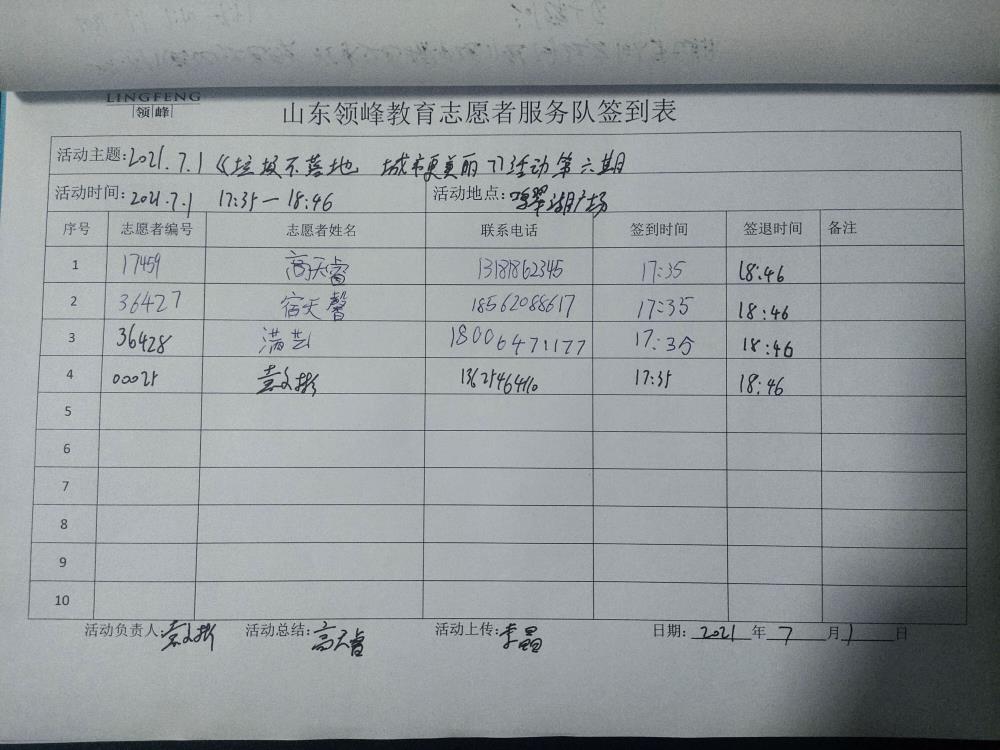 LINGFENG
领峰
山东领峰教育志愿者服务队签到表
活动主题:2021.7.1《垃圾不落地 城市更美丽》活动第六期
活动时间:2021.7.1 17:35—18:46 活动地点:翠湖广场
序号 志愿者编号 志愿者姓名 联系电话 签到时间 签退时间 备注
1 17459 高天睿 13181862345 17:35 18:46
2 36427 宿天馨 18562088617 17:35 18:46
3 36428 满芸 18006471177 17:35 18:46
4 00025 袁文彬 17:35 18:46
5
6
7
8
9
10
活动负责人:袁文彬 活动总结:高天睿 活动上传:李晶 日期:2021年7月1日